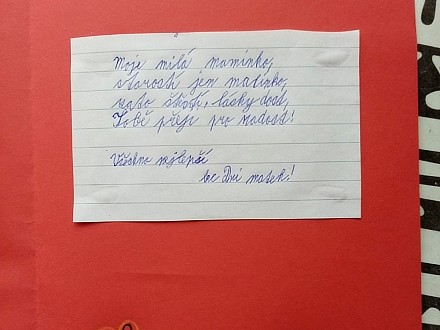 Moje milá maminko,
starostí jen malinko,
zato štěstí, lásky dost,
Tobě přeji pro radost!
Všechno nejlepší
ke Dni matek!